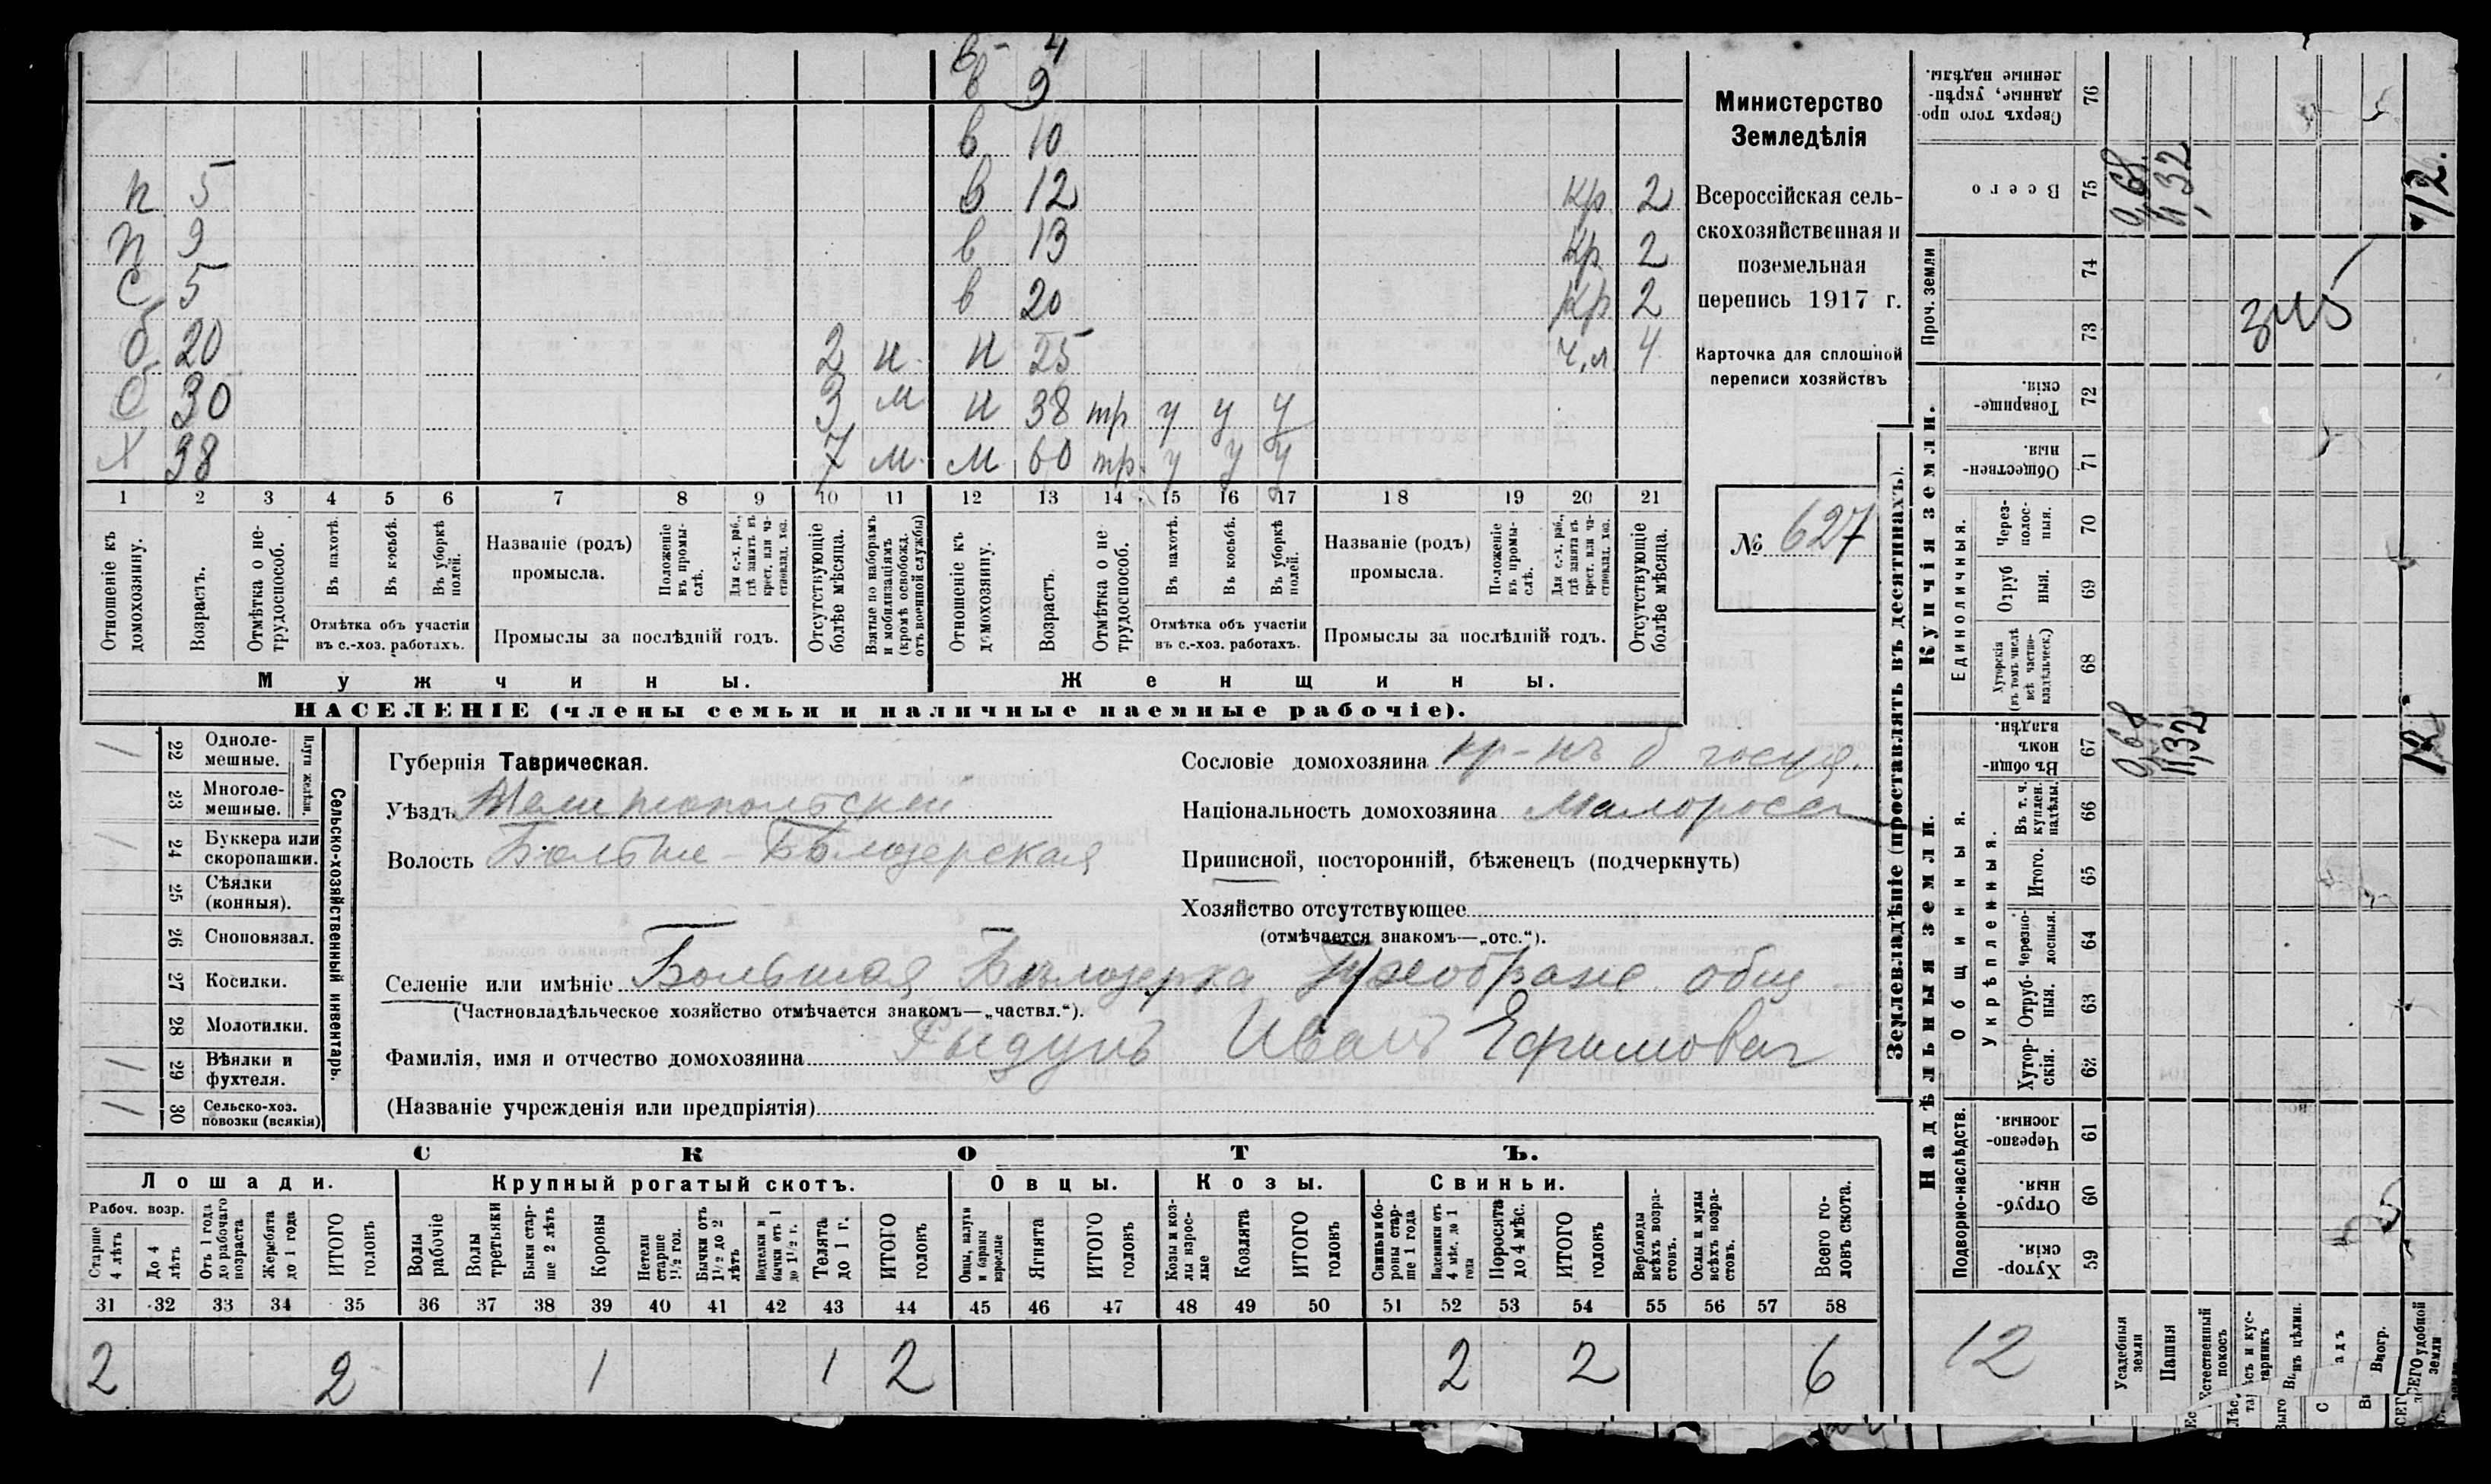 в 4
в 9
в 10
п 5 в 12 кр 2
п 9 в 13 кр 2
с 5 в 20 кр 2
б 20 2 н н 25 ч.л 4
с 30 3 м н 38 тр у у у
х 38 7 м м 60 тр. у у у
1 2 3 4 5 6 7 8 9 10 11 12 13 14 15 16 17 18 19 20 21
Отношеніе къ домохозяину.
Возрастъ.
Отмѣтка о нетрудоспособ.
Въ пахотѣ.
Въ косьбѣ.
Въ уборкѣ полей.
Отмѣтка объ участіи въ с.-хоз. работахъ.
Названіе (родъ) промысла.
Положеніе въ промыслѣ.
Для с.-х. раб., гдѣ занятъ въ крест. или частновлад. хоз.
Промыслы за послѣдній годъ.
Отсутствующіе болѣе мѣсяца.
Взятые по наборамъ и мобилизаціямъ (кромѣ освобожд. отъ военной службы)
Отношеніе къ домохозяину.
Возрастъ
Отмѣтка о нетрудоспособ.
Въ пахотѣ.
Въ косьбѣ.
Въ уборкѣ полей.
Отмѣтка объ участіи въ с.-хоз. работахъ.
Названіе (родъ) промысла.
Положеніе въ промыслѣ.
Для с.-х. раб., гдѣ занята въ крест. или частновлад. хоз.
Промыслы за послѣдній годъ.
Отсутствующіе болѣе мѣсяца.
Мужчины. Женщины.
НАСЕЛЕНІЕ (члены семьи и наличные наемные рабочіе).
Министерство
Земледѣлія
Всероссійская сель-
скохозяйственная и
поземельная
перепись 1917 г.
Карточка для сплошной
переписи хозяйствъ
№ 627
Сельско-хозяйственный инвентарь.
Плуги желѣзн.
1 22 Одноле-
мешные.
23 Многоле-
мешные.
1 24 Буккера или
скоропашки.
25 Сѣялки
(конныя).
26 Сноповязал.
27 Косилки.
28 Молотилки.
1 29 Вѣялки и
фухтеля.
1 30 Сельско-хоз.
повозки (всякія)
Губернія Таврическая.
Уѣздъ Мелитопольскій
Волость Больше-Бѣлозерская
Сословіе домохозяина кр-нъ б госуд.
Національность домохозяина Малоросс
Приписной, посторонній, бѣженецъ (подчеркнуть)
Хозяйство отсутствующее
(отмѣчается знакомъ—„отс.“).
Селеніе или имѣніе Большая Бѣлозерка общ
(Частновладѣльческое хозяйство отмѣчается знакомъ—„частвл.“).
Фамилія, имя и отчество домохозяина Иванъ Ефимович
(Названіе учрежденія или предпріятія)
СКОТЪ.
Лошади. Крупный рогатый скотъ. Овцы. Козы. Свиньи.
Рабоч. возр.
Старше 4 лѣтъ
До 4 лѣтъ
Отъ 1 года до рабочаго возраста
Жеребята до 1 года
ИТОГО головъ
Волы рабочіе
Волы третьяки
Быки старше 2 лѣтъ
Коровы
Нетели старше 1½ год.
Бычки отъ 1½ до 2 лѣтъ
Подтелки и бычки отъ 1 до 1½ г.
Телята до 1 г.
ИТОГО головъ
Овцы, валухи и бараны взрослые
Ягнята
ИТОГО головъ
Козы и козлы взрослые
Козлята
ИТОГО головъ
Свиньи и боровы старше 1 года
Подсвинки отъ 4 мѣс. до 1 года
Поросята до 4 мѣс.
ИТОГО головъ
Верблюды всѣхъ возрастовъ.
Ослы и мулы всѣхъ возрастовъ.
Всего головъ скота.
31 32 33 34 35 36 37 38 39 40 41 42 43 44 45 46 47 48 49 50 51 52 53 54 55 56 57 58
2 2 1 1 2 2 2 6
Землевладѣніе (проставлять въ десятинахъ).
Купчія земли.
Надѣльныя земли.
Проч. земли
Единоличныя.
Общинныя.
Укрѣпленныя.
Подворно-наслѣдств.
76 Сверхъ того проданные, укрѣпленные надѣлы.
75 Всего 0,68. 11,32 12.
74
73
345
72 Товарищескія.
71 Общественныя
70 Черезполосныя.
69 Отрубныя.
68 Хуторскія (въ томъ числѣ всѣ частновладѣльческ.)
67 Въ общинномъ владѣн. 0,68 11,32 12
66 Въ т. ч. куплен. надѣлы.
65 Итого.
64 Черезполосныя.
63 Отрубныя.
62 Хуторскія.
61 Черезполосныя
60 Отрубныя.
59 Хуторскія.
12
Усадебныя земли
Пашня
Естественный покосъ
Виногр.
ВСЕГО удобной земли